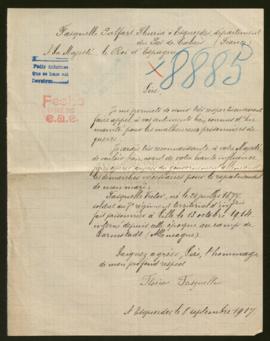 Fasquelle Delfart Fleurie à Esquerdes, département
du Pas de Calais France
A Sa Majesté le Roi d'Espagne
8885
Sire
Je me permets de vous très respectueusement
faire appel à vos sentiments bien connus d'hu-
manité, pour les malheureux prisonniers de
guerre.
Je serais très reconnaissante à votre Majesté
de vouloir bien, usant de votre haute influence,
auprès du gouvernement
les démarches nécessaires pour le rapatriement
de mon mari.
Fasquelle Victor, né le 20 juillet
soldat au 7e régiment territorial d'infanterie
fait prisonnier à Lille le 13 octobre 1914
interné depuis cette époque au camp de
Darmstadt (Allemagne)
Daignez agréer, Sire, l'hommage
de mon profond respect
Fleurie Fasquelle
A Esquerdes le 1 septembre 1917